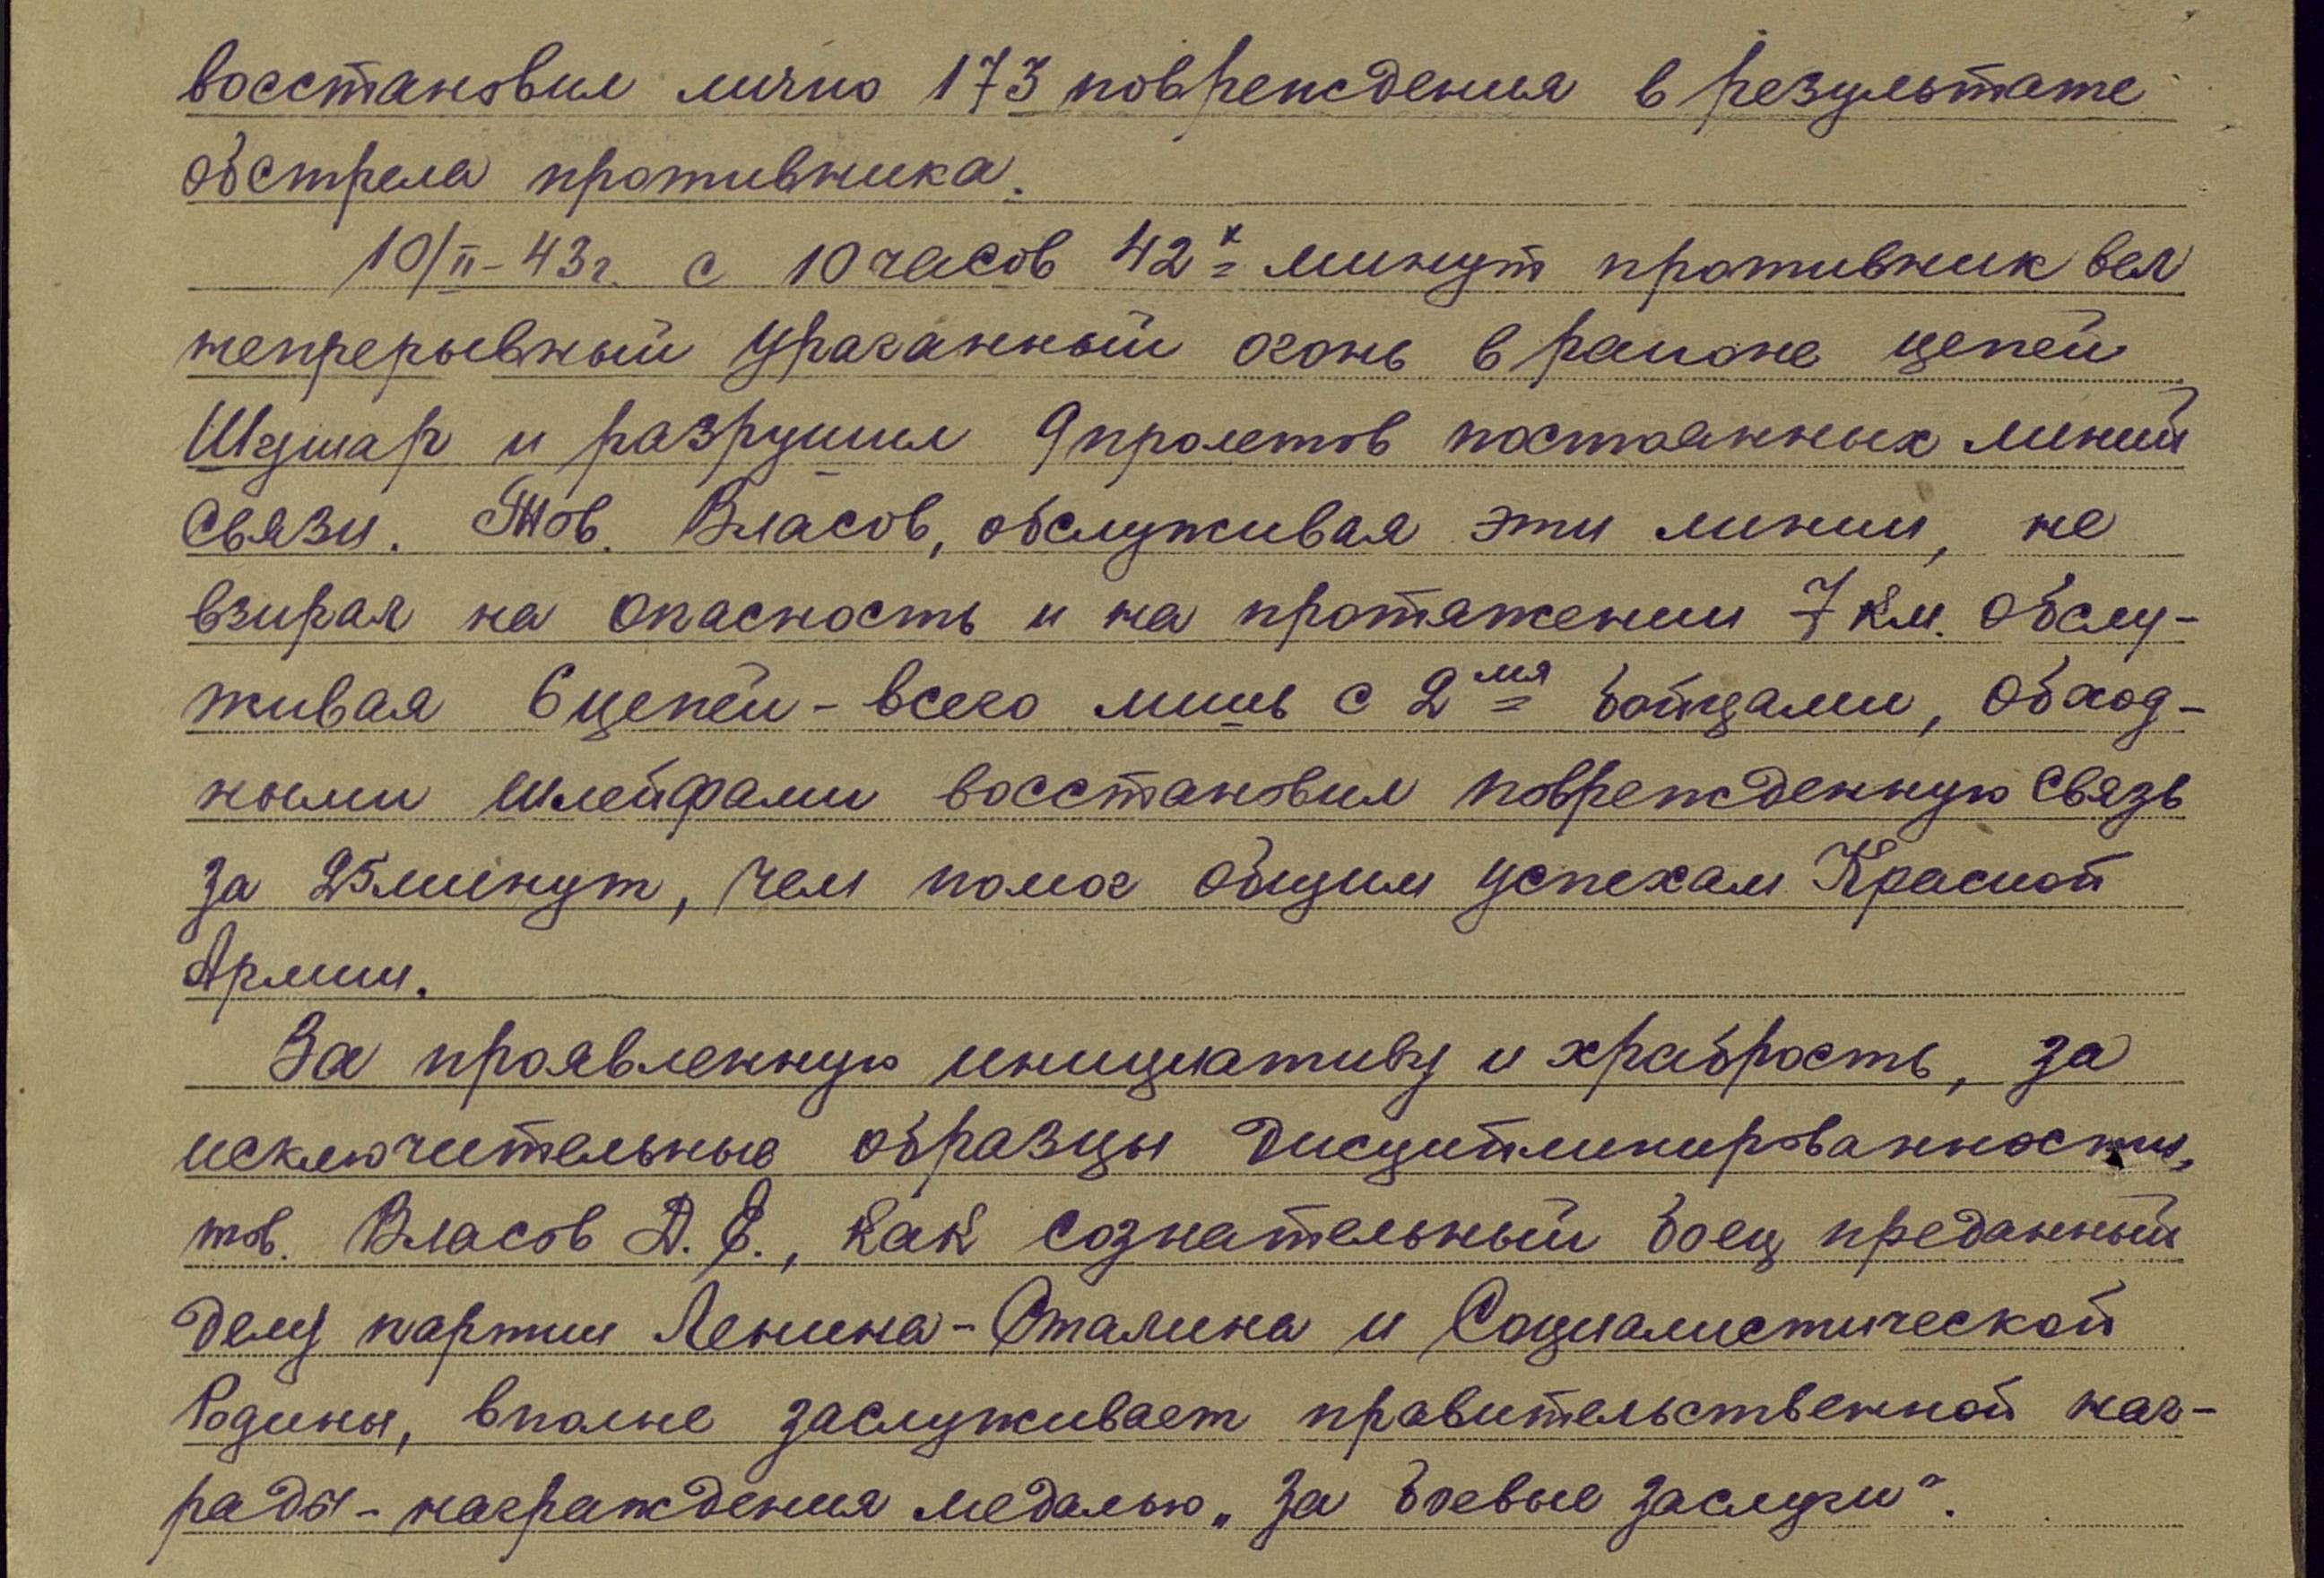 восстановил лично 173 повреждения в результате
обстрела противника.
10/II-43г. с 10 часов 42х минут противник вел
непрерывный ураганный огонь в районе цепей
Шушар и разрушил 9 пролетов постоянных линий
связи. Тов. Власов, обслуживая эти линии, не
взирая на опасность и на протяжении 7 км. обслу-
живая 6 цепей - всего лишь с 2мя бойцами, обход-
ными шлейфами восстановил поврежденную связь
за 25 минут, чем помог общим успехам Красной
Армии.
За проявленную инициативу и храбрость, за
исключительные образцы дисциплинированности,
тов. Власов Д. Е., как сознательный боец преданный
делу партии Ленина-Сталина и Социалистической
Родины, вполне заслуживает правительственной наг-
рады - награждения медалью „За боевые заслуги“.